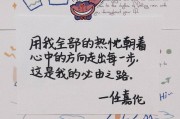 用我全部的热忱朝着
心中的方向走出每一步，
这是我的必由之路.
—任嘉伦